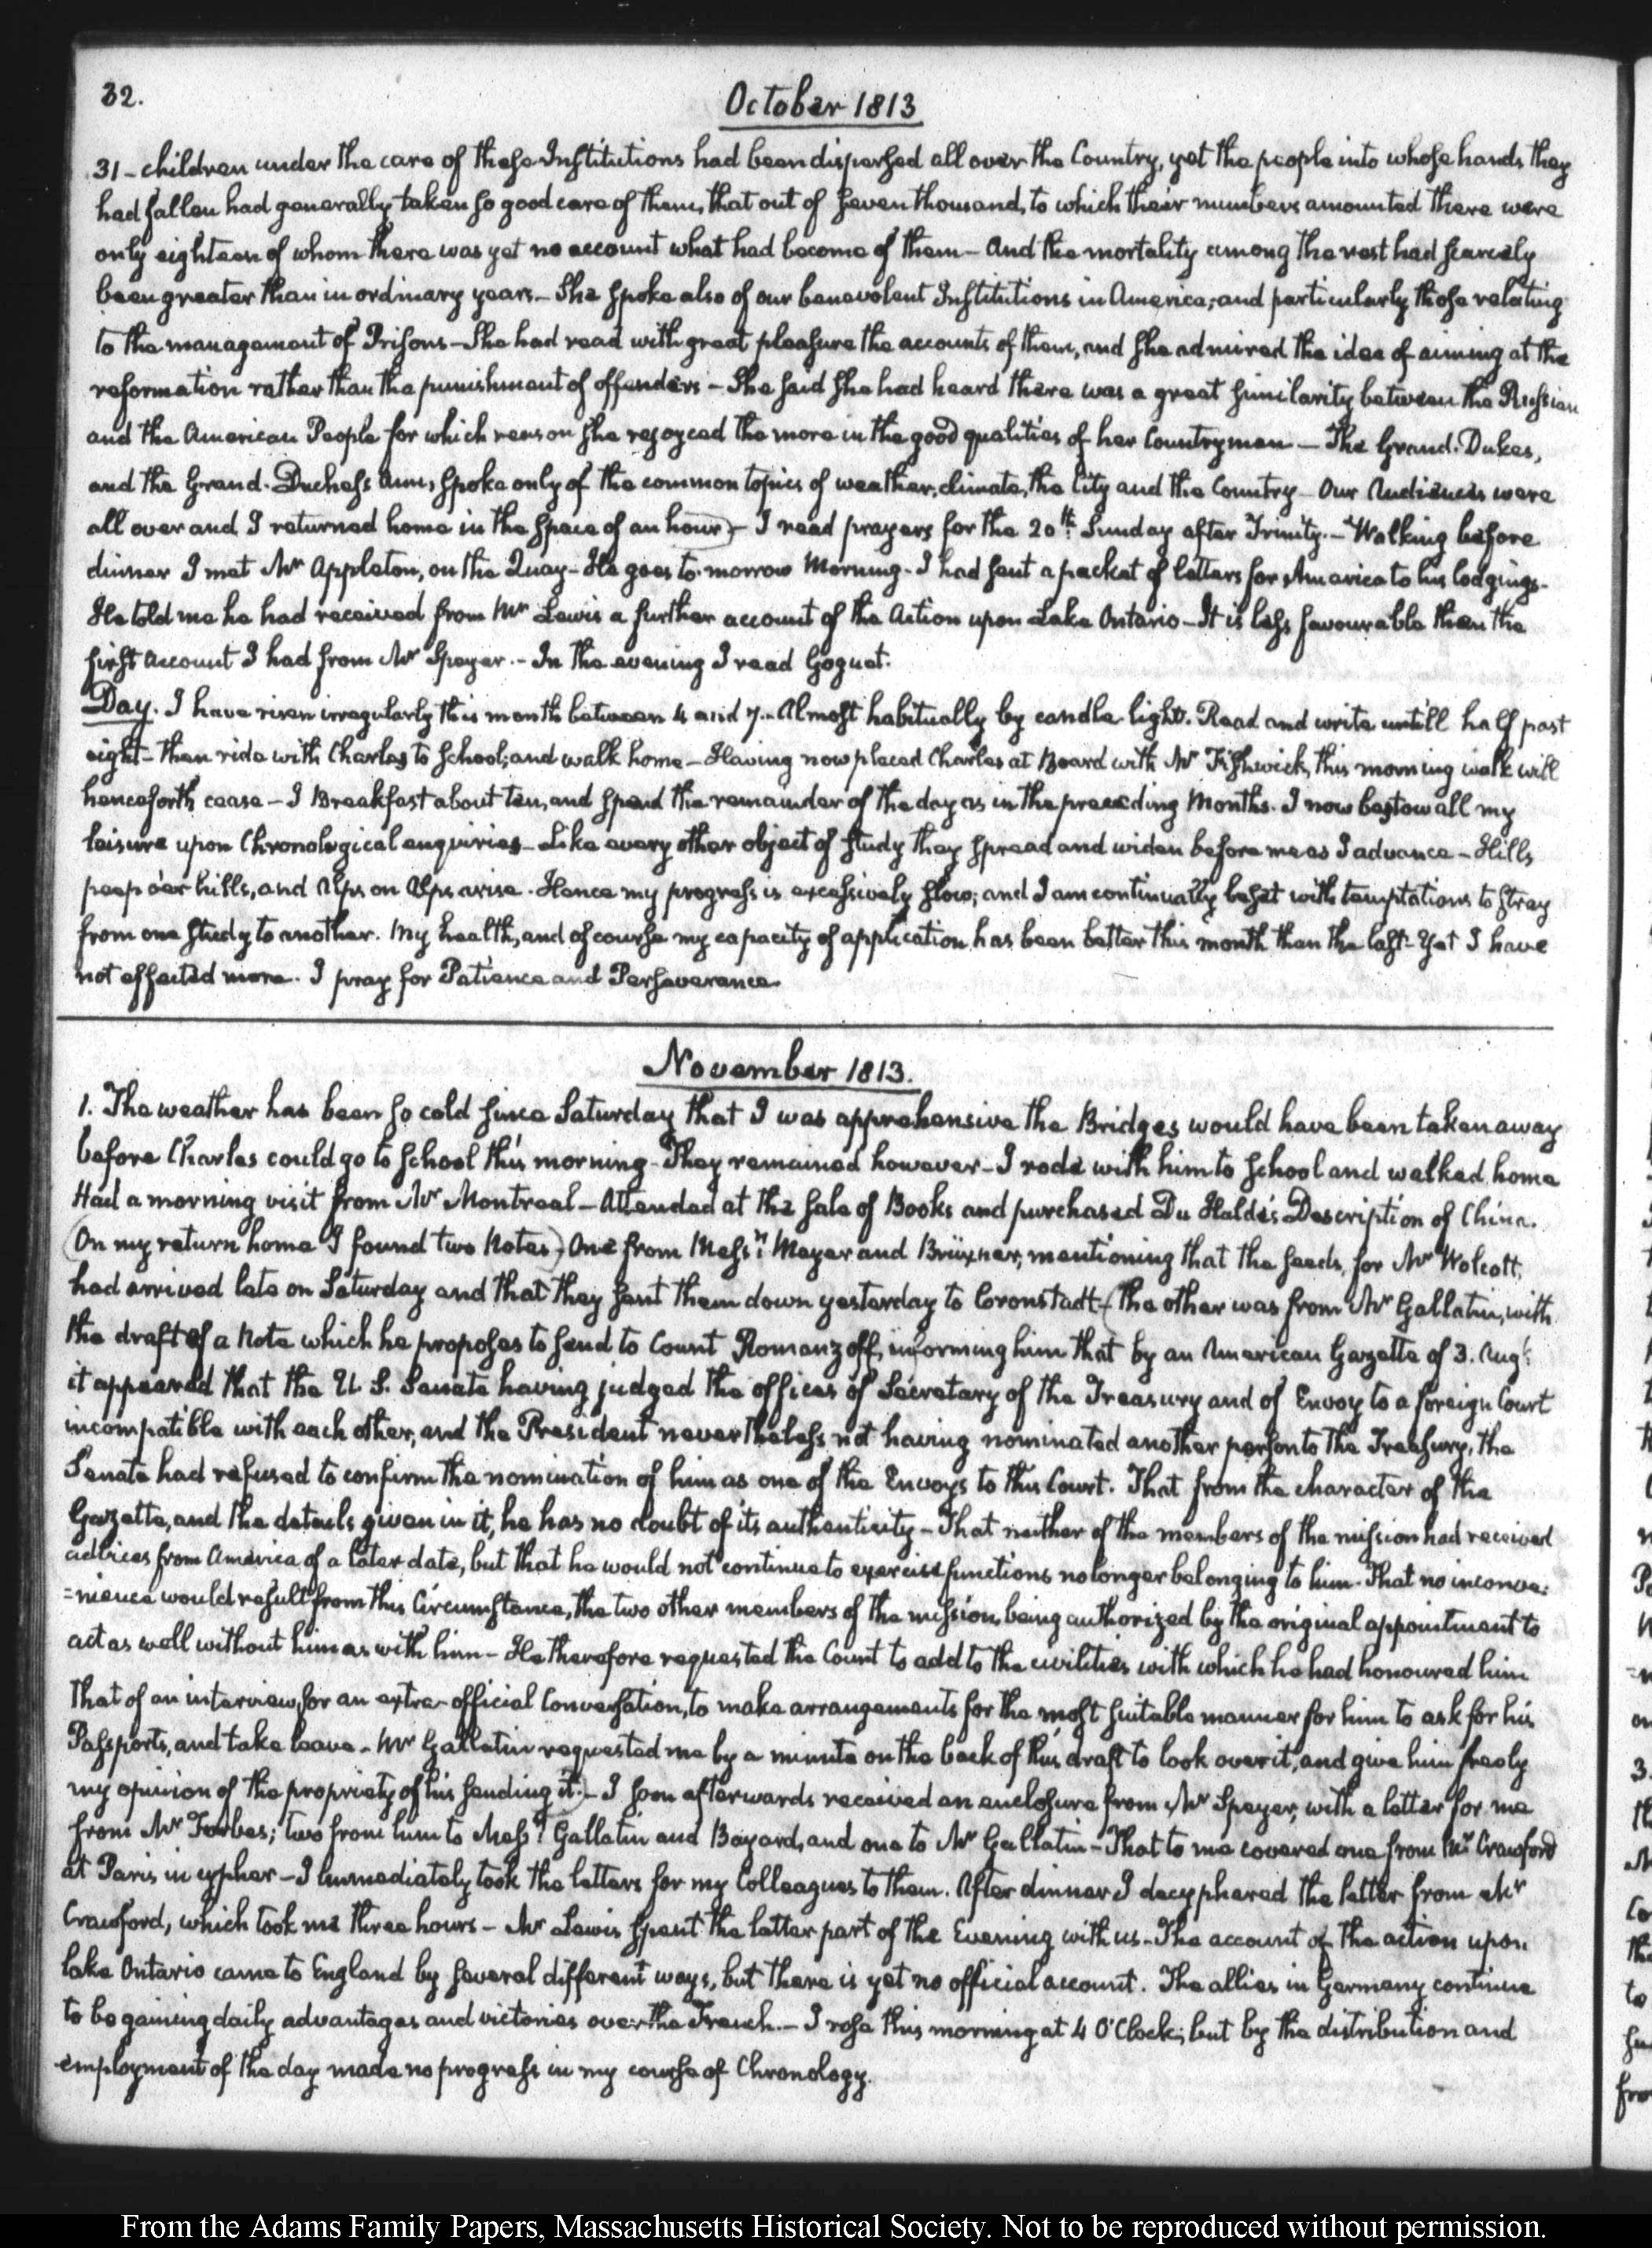 32.
October 1813
31 - children under the care of these Institutions had been dispersed all over the Country, yet the people into whose hands they
had fallen had generally taken so good care of them, that out of seven thousand, to which their numbers amounted there were
only eighteen of whom there was yet no account what had become of them - And the mortality among the rest had scarcely
been greater than in ordinary years - She spoke also of our benevolent Institutions in America; and particularly those relating
to the management of Prisons - She had read with great pleasure the accounts of them, and she admired the idea of aiming at the
reformation rather than the punishment of offenders - She said she had heard there was a great similarity between the Russian
and the American People for which reason she rejoyced the more in the good qualities of her Countrymen. - The Grand-Dukes,
and the Grand-Duchess Ann, spoke only of the common topics of weather, climate, the City and the Country - Our Audiences were
all over and I returned home in the space of an hour) - I read prayers for the 20th. Sunday after Trinity. - Walking before
dinner I met Mr Appleton, on the Quay - He goes to-morrow Morning - I had sent a packet of letters for America to his lodgings -
He told me he had received from Mr Lewis a further account of the Action upon Lake Ontario - It is less favourable than the
first account I had from Mr Speyer. - In the evening I read Goguet.
Day. I have risen irregularly this month between 4 and 7. - Almost habitually by candle light. Read and write untill half past
eight - then ride with Charles to School; and walk home - Having now placed Charles at Board with Mr Fishwick, this morning walk will
henceforth cease - I Breakfast about ten, and spend the remainder of the day as in the preceding Months. I now bestow all my
leisure upon Chronological enquiries - Like every other object of study they spread and widen before me as I advance - Hills
peep o'er hills, and Alps on Alps arise. Hence my progress is excessively slow; and I am continually beset with temptations to stray
from one study to another. My health, and of course my capacity of application has been better this month than the last - Yet I have
not effected more. I pray for Patience and Perseverance.
November 1813.
1. The weather has been so cold since Saturday that I was apprehensive the Bridges would have been taken away
before Charles could go to School this morning - They remained however - I rode with him to School and walked home
Had a morning visit from Mr Montreal - Attended at the sale of Books and purchased Du Halde's Description of China.
(On my return home I found two Notes,) One from Messrs. Meyer and Brüxner, mentioning that the seeds, for Mr Wolcott,
had arrived late on Saturday and that they sent them down yesterday to Cronstadt - (the other was from Mr Gallatin, with
the draft of a Note which he proposes to send to Count Romanzoff, informing him that by an American Gazette of 3. Augt.
it appeared that the U. S. Senate having judged the offices of Secretary of the Treasury and of Envoy to a foreign Court
incompatible with each other, and the President nevertheless not having nominated another person to the Treasury, the
Senate had refused to confirm the nomination of him as one of the Envoys to this Court. That from the character of the
Gazette, and the details given in it, he has no doubt of its authenticity - That neither of the members of the mission had received
advices from America of a later date, but that he would not continue to exercise functions no longer belonging to him. That no inconve=
=nience would result from this Circumstance, the two other members of the mission, being authorized by the original appointment to
act as well without him as with him - He therefore requested the Count to add to the civilities with which he had honoured him
that of an interview, for an extra-official Conversation, to make arrangements for the most suitable manner for him to ask for his
Passports, and take leave - Mr Gallatin requested me by a minute on the back of this draft to look over it, and give him freely
my opinion of the propriety of his sending it.) - I soon afterwards received an enclosure from Mr Speyer, with a letter for me
from Mr Forbes; two from him to Messrs. Gallatin and Bayard, and one to Mr Gallatin - That to me covered one from Mr Crawford
at Paris in cypher - I immediately took the letters for my Colleagues to them. After dinner I decyphered the letter from Mr
Crawford, which took me three hours - Mr Lewis spent the latter part of the Evening with us - The account of the action upon
lake Ontario came to England by several different ways, but there is yet no official account. The allies in Germany continue
to be gaining daily advantages and victories over the French. - I rose this morning at 4 O'Clock; but by the distribution and
employment of the day made no progress in my course of Chronology.
From the Adams Family Papers, Massachusetts Historical Society. Not to be reproduced without permission.